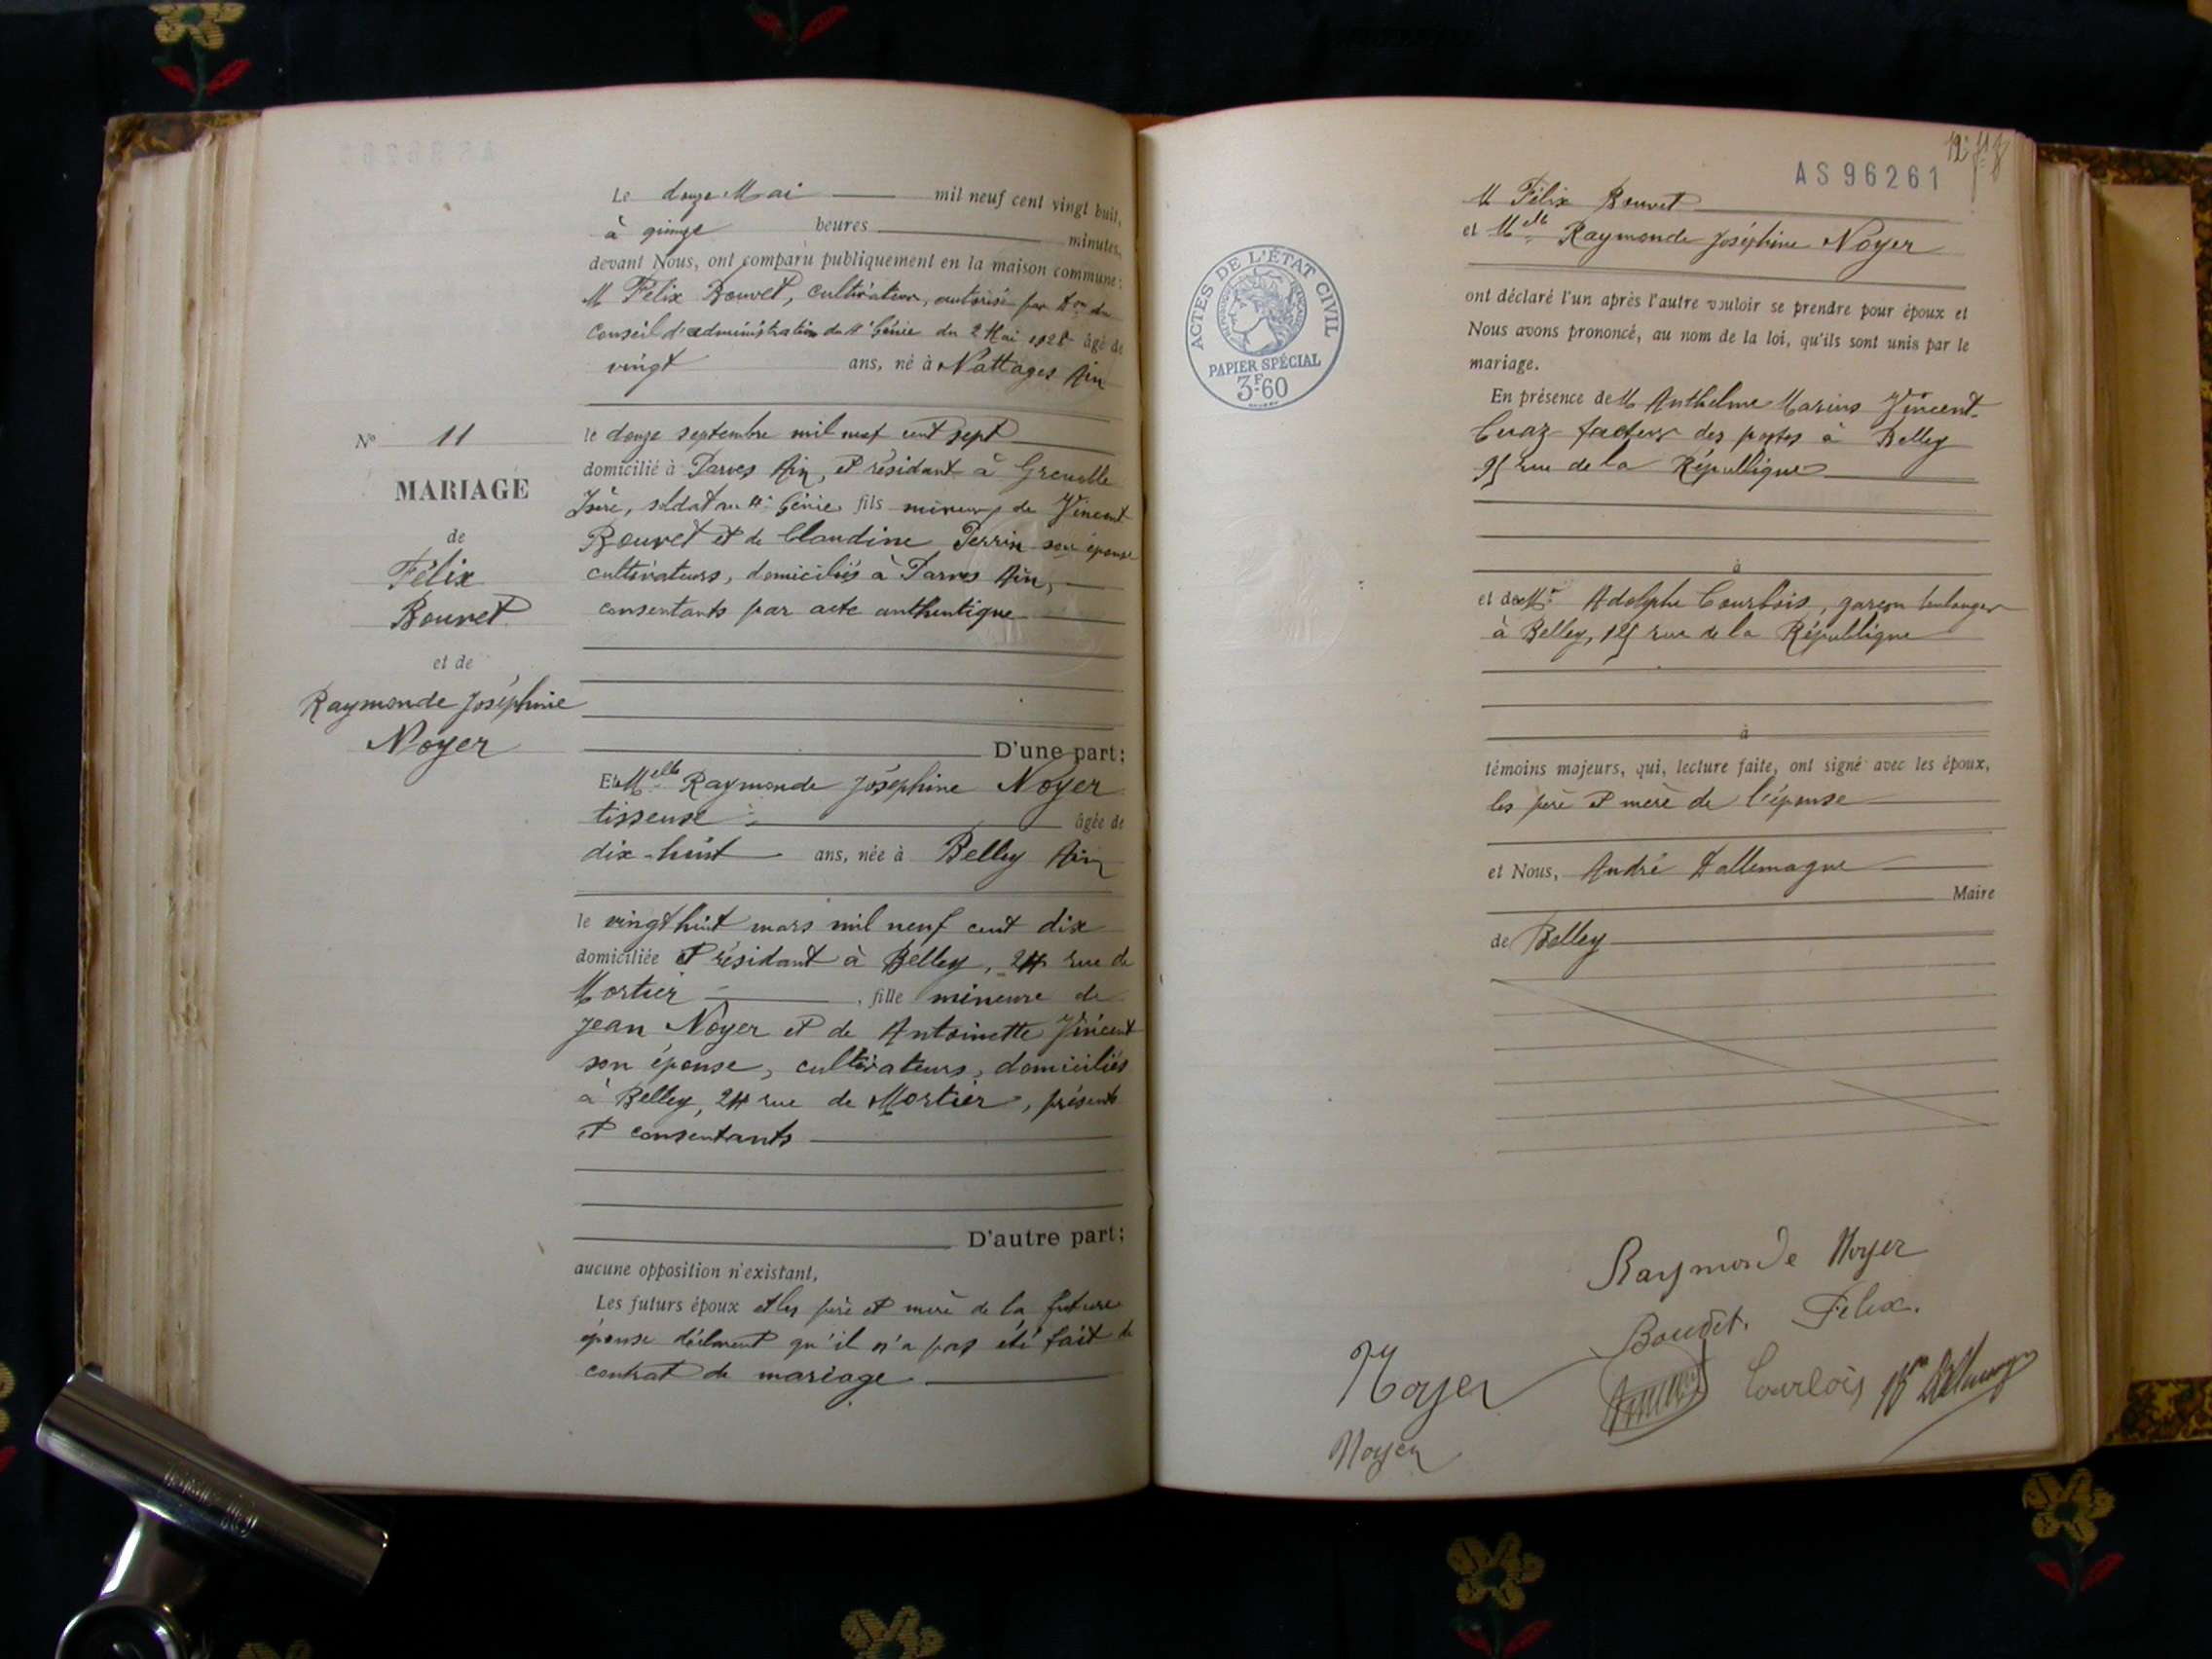 Le douze Mai mil neuf cent vingt huit,
à quinze heures minutes,
devant Nous, ont comparu publiquement en la maison commune:
M Félix Bouvet, cultivateur, autorisé par Don du
Conseil d'administration du 4e Génie du 2 Mai 1928 âgé de
vingt ans, né à Nattages Ain
le douze septembre mil neuf cent sept
domicilié à Parves Ain, et résidant à Grenoble
Isère, soldat au 4e Génie fils mineur de Vincent
Bouvet et de Claudine Perrin son épouse
cultivateurs, domiciliés à Parves Ain,
consentants par acte authentique
D'une part;
Et Melle Raymonde Joséphine Noyer
tisseuse âgée de
dix-huit ans, née à Belley Ain
le vingt huit mars mil neuf cent dix
domiciliée et résidant à Belley, 24 rue de
Mortier, fille mineure de
Jean Noyer et de Antoinette Vincent
son épouse, cultivateurs, domiciliés
à Belley, 24 rue de Mortier, présents
et consentants
D'autre part;
aucune opposition n'existant,
Les futurs époux et les père et mère de la future
épouse déclarent qu'il n'a pas été fait de
contrat de mariage
No 11
MARIAGE
de
Félix
Bouvet
et de
Raymonde Joséphine
Noyer
AS 96261
ACTES DE L'ÉTAT CIVIL
PAPIER SPÉCIAL
3F60
M Félix Bouvet
et Melle Raymonde Joséphine Noyer
ont déclaré l'un après l'autre vouloir se prendre pour époux et
Nous avons prononcé, au nom de la loi, qu'ils sont unis par le
mariage.
En présence de M Anthelme Marius Vincent-
Cuaz facteur des postes à Belley
95 rue de la République
à
et de M. Adolphe Courlois, garçon boulanger
à Belley, 125 rue de la République
à
témoins majeurs, qui, lecture faite, ont signé avec les époux,
les père et mère de l'épouse
et Nous, André Dallemagne
Maire
de Belley
Raymonde Noyer
Bouvet. Félix.
Noyer
Courlois
Noyer